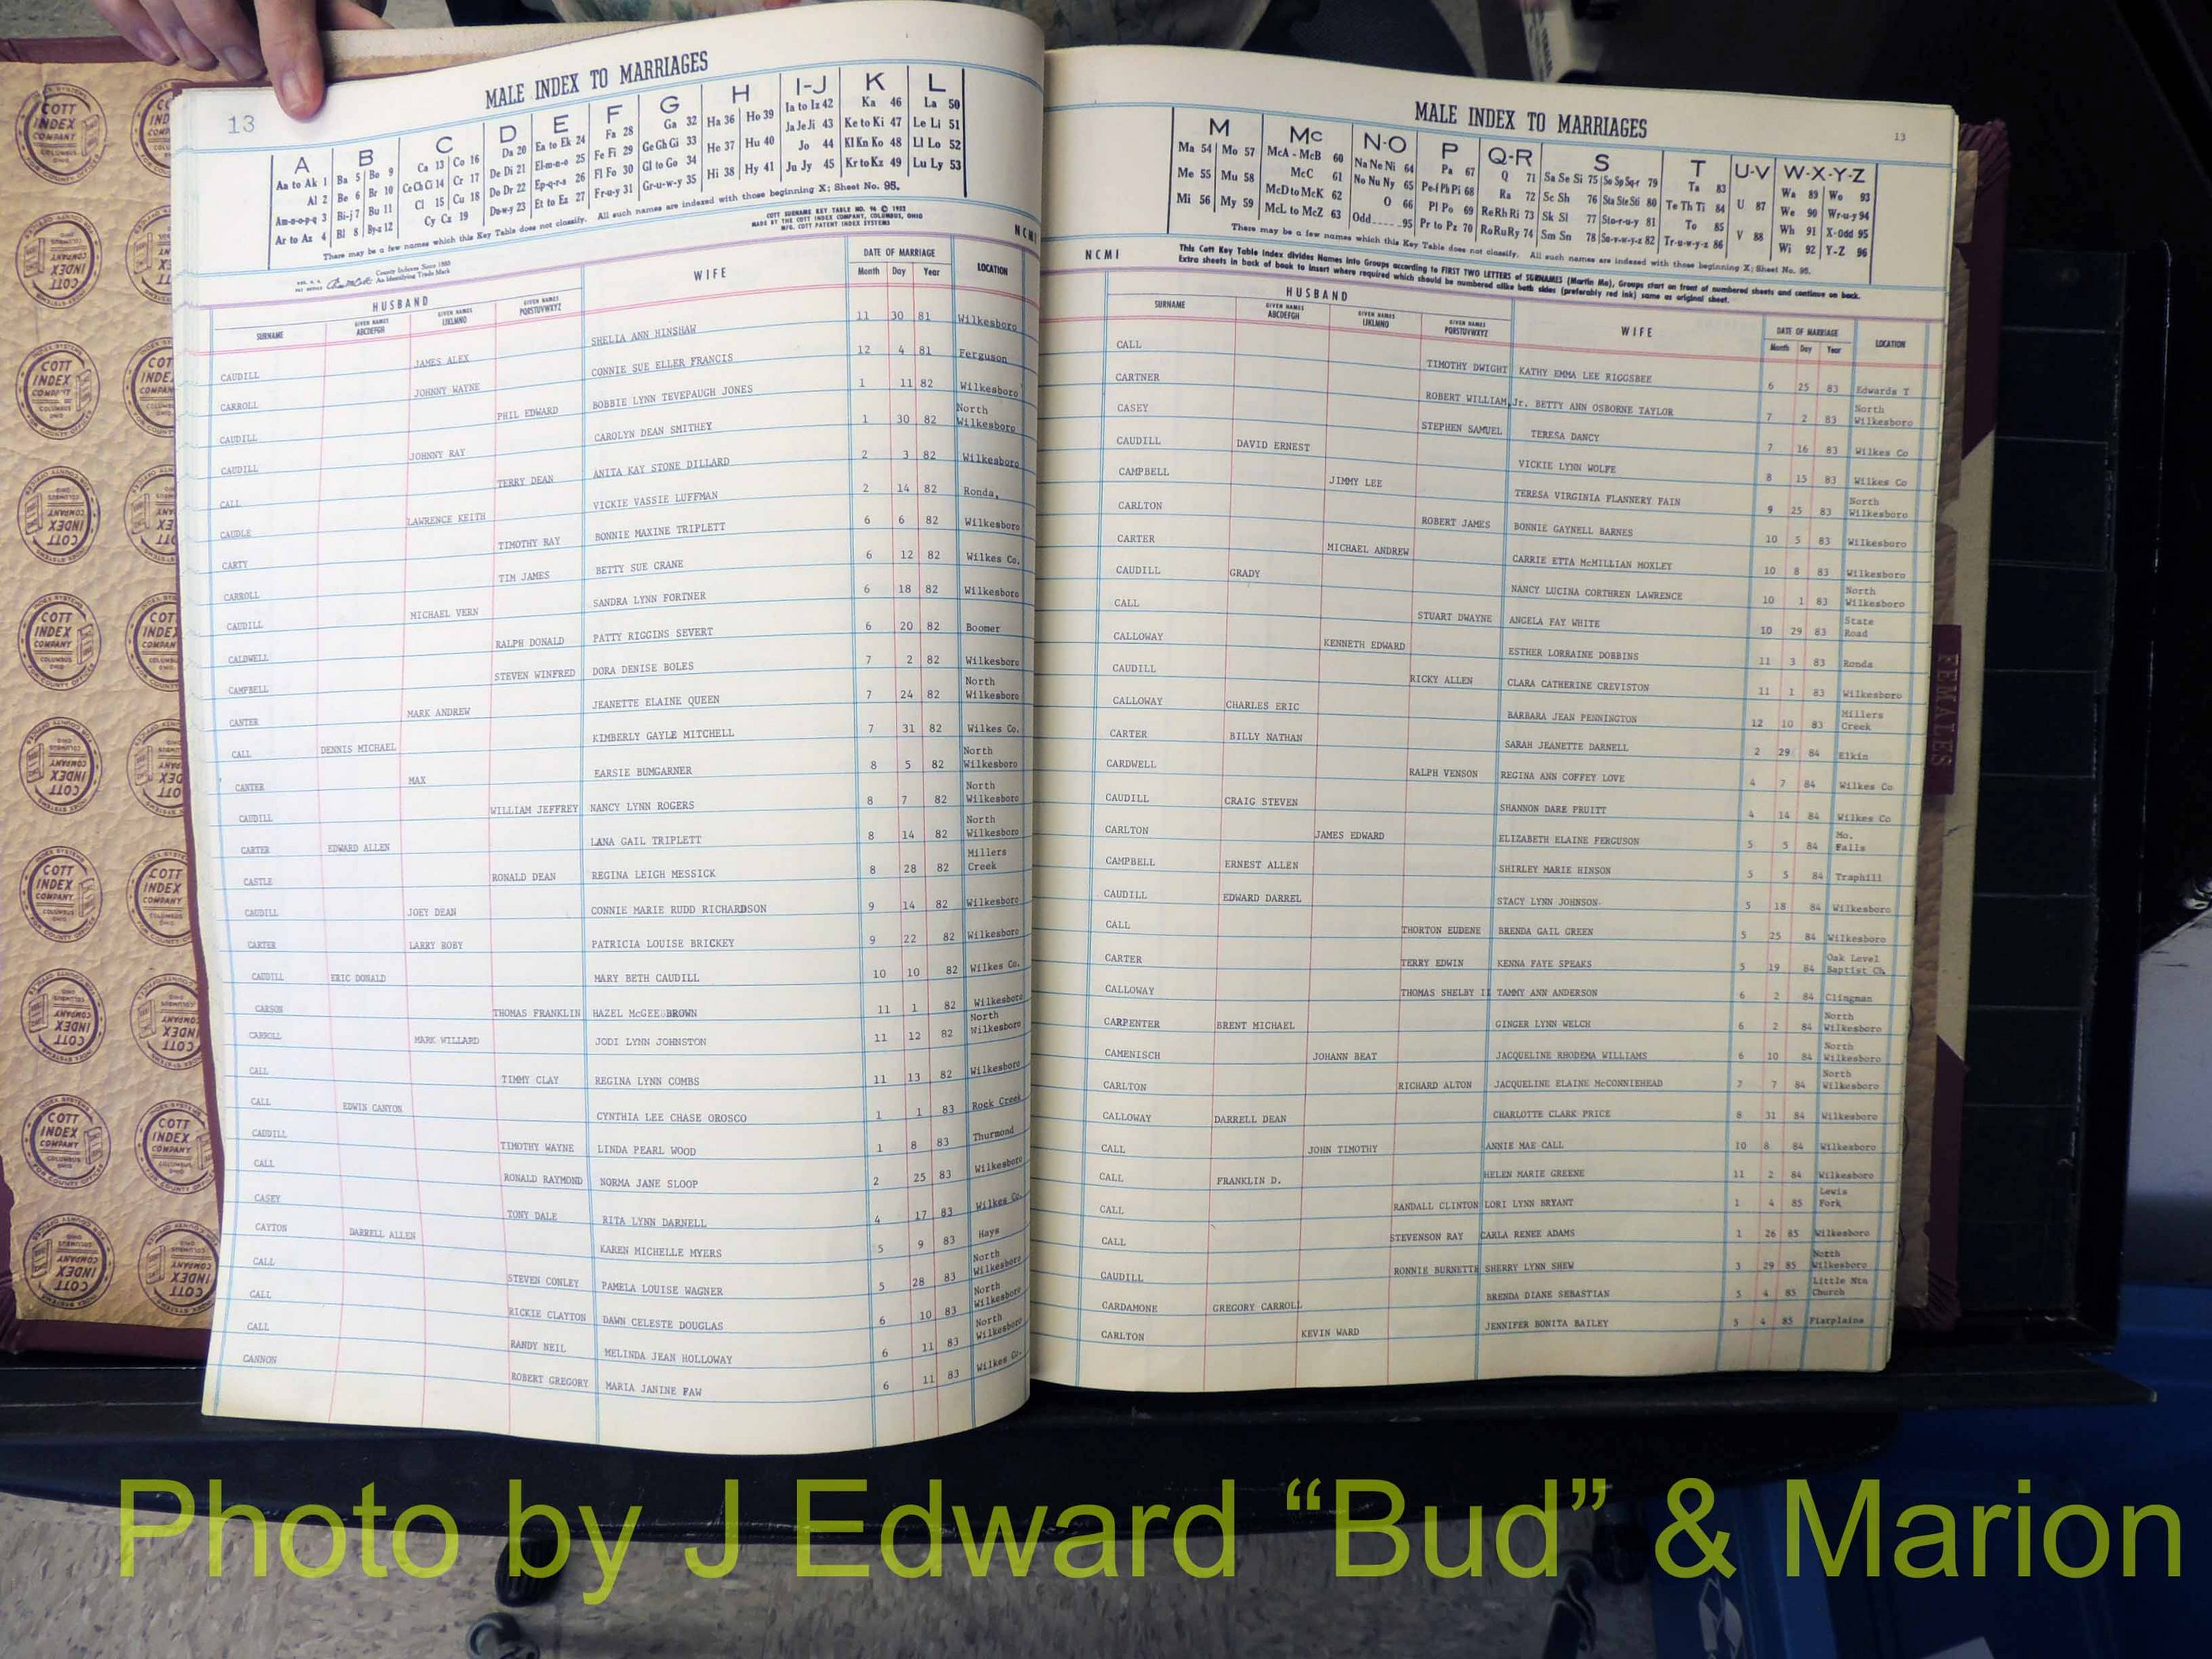 13
MALE INDEX TO MARRIAGES
A B C D E F G H I-J K L
Aa to Ak 1 Ba 5 Bo 9 Ca 13 Co 16 Da 20 Ea to Ek 24 Fa 28 Ga 32 Ha 36 Ho 39 Ia to Iz 42 Ka 46 La 50
Al 2 Be 6 Br 10 Ce Ch Ci 14 Cr 17 De Di 21 El-m-n-o 25 Fe Fi 29 Ge Gh Gi 33 He 37 Hu 40 Ja Je Ji 43 Ke to Ki 47 Le Li 51
Am-n-o-p-q 3 Bi-j 7 Bu 11 Cl 15 Cu 18 Do Dr 22 Ep-q-r-s 26 Fl Fo 30 Gl to Go 34 Hi 38 Hy 41 Jo 44 Kl Kn Ko 48 Ll Lo 52
Ar to Az 4 Bl 8 By-z 12 Cy Cz 19 Du-w-y 23 Et to Ez 27 Fr-u-y 31 Gr-u-w-y 35 Ju Jy 45 Kr to Kz 49 Lu Ly 53
There may be a few names which this Key Table does not classify. All such names are indexed with those beginning X; Sheet No. 95.
County Indexes Since 1888
An Identifying Trade Mark
COTT SURNAME KEY TABLE NO. 96 © 1952
MADE BY THE COTT INDEX COMPANY, COLUMBUS, OHIO
MFG. COTT PATENT INDEX SYSTEMS
NCMI
HUSBAND WIFE DATE OF MARRIAGE LOCATION
SURNAME GIVEN NAMES ABCDEFGH GIVEN NAMES IJKLMNO GIVEN NAMES PQRSTUVWXYZ Month Day Year
CAUDILL JAMES ALEX SHELIA ANN HINSHAW 11 30 81 Wilkesboro
CARROLL JOHNNY WAYNE CONNIE SUE ELLER FRANCIS 12 4 81 Ferguson
CAUDILL PHIL EDWARD BOBBIE LYNN TEVEPAUGH JONES 1 11 82 Wilkesboro
CAUDILL JOHNNY RAY CAROLYN DEAN SMITHEY 1 30 82 North Wilkesboro
CALL TERRY DEAN ANITA KAY STONE DILLARD 2 3 82 Wilkesboro
CAUDLE LAWRENCE KEITH VICKIE VASSIE LUFFMAN 2 14 82 Ronda,
CARTY TIMOTHY RAY BONNIE MAXINE TRIPLETT 6 6 82 Wilkesboro
CARROLL TIM JAMES BETTY SUE CRANE 6 12 82 Wilkes Co.
CAUDILL MICHAEL VERN SANDRA LYNN FORTNER 6 18 82 Wilkesboro
CALDWELL RALPH DONALD PATTY RIGGINS SEVERT 6 20 82 Boomer
CAMPBELL STEVEN WINFRED DORA DENISE BOLES 7 2 82 Wilkesboro
CANTER MARK ANDREW JEANETTE ELAINE QUEEN 7 24 82 North Wilkesboro
CALL DENNIS MICHAEL KIMBERLY GAYLE MITCHELL 7 31 82 Wilkes Co.
CANTER MAX EARSIE BUMGARNER 8 5 82 North Wilkesboro
CAUDILL WILLIAM JEFFREY NANCY LYNN ROGERS 8 7 82 North Wilkesboro
CARTER EDWARD ALLEN LANA GAIL TRIPLETT 8 14 82 North Wilkesboro
CASTLE RONALD DEAN REGINA LEIGH MESSICK 8 28 82 Millers Creek
CAUDILL JOEY DEAN CONNIE MARIE RUDD RICHARDSON 9 14 82 Wilkesboro
CARTER LARRY ROBY PATRICIA LOUISE BRICKEY 9 22 82 Wilkesboro
CAUDILL ERIC DONALD MARY BETH CAUDILL 10 10 82 Wilkes Co.
CARSON THOMAS FRANKLIN HAZEL McGEE BROWN 11 1 82 Wilkesboro
CARROLL MARK WILLARD JODI LYNN JOHNSTON 11 12 82 North Wilkesboro
CALL TIMMY CLAY REGINA LYNN COMBS 11 13 82 Wilkesboro
CALL EDWIN CANYON CYNTHIA LEE CHASE OROSCO 1 1 83 Rock Creek
CAUDILL TIMOTHY WAYNE LINDA PEARL WOOD 1 8 83 Thurmond
CALL RONALD RAYMOND NORMA JANE SLOOP 2 25 83 Wilkesboro
CASEY TONY DALE RITA LYNN DARNELL 4 17 83 Wilkes Co.
CAYTON DARRELL ALLEN KAREN MICHELLE MYERS 5 9 83 Hays
CALL STEVEN CONLEY PAMELA LOUISE WAGNER 5 28 83 North Wilkesboro
CALL RICKIE CLAYTON DAWN CELESTE DOUGLAS 6 10 83 North Wilkesboro
CALL RANDY NEIL MELINDA JEAN HOLLOWAY 6 11 83 North Wilkesboro
CANNON ROBERT GREGORY MARIA JANINE FAW 6 11 83 Wilkes Co.
MALE INDEX TO MARRIAGES
13
M Mc N-O P Q-R S T U-V W-X-Y-Z
Ma 54 Mo 57 McA - McB 60 Na Ne Ni 64 Pa 67 Q 71 Sa Se Si 75 So Sp Sq-r 79 Ta 83 U 87 Wa 89 Wo 93
Me 55 Mu 58 McC 61 No Nu Ny 65 Pe-f Ph Pi 68 Ra 72 Sc Sh 76 Sta Ste Sti 80 Te Th Ti 84 V 88 We 90 Wr-u-y 94
Mi 56 My 59 McD to McK 62 O 66 Pl Po 69 Re Rh Ri 73 Sk Sl 77 Sto-r-u-y 81 To 85 Wh 91 X-Odd 95
McL to McZ 63 Odd 95 Pr to Pz 70 Ro Ru Ry 74 Sm Sn 78 Su-v-w-y-z 82 Tr-u-w-y-z 86 Wi 92 Y-Z 96
There may be a few names which this Key Table does not classify. All such names are indexed with those beginning X; Sheet No. 95.
NCMI
This Cott Key Table Index divides Names into Groups according to FIRST TWO LETTERS of SURNAMES (Martin Ma), Groups start on front of numbered sheets and continue on back.
Extra sheets in back of book to insert where required which should be numbered alike both sides (preferably red ink) same as original sheet.
HUSBAND WIFE DATE OF MARRIAGE LOCATION
SURNAME GIVEN NAMES ABCDEFGH GIVEN NAMES IJKLMNO GIVEN NAMES PQRSTUVWXYZ Month Day Year
CALL TIMOTHY DWIGHT KATHY EMMA LEE RIGGSBEE 6 25 83 Edwards T
CARTNER ROBERT WILLIAM, Jr. BETTY ANN OSBORNE TAYLOR 7 2 83 North Wilkesboro
CASEY STEPHEN SAMUEL TERESA DANCY 7 16 83 Wilkes Co
CAUDILL DAVID ERNEST VICKIE LYNN WOLFE 8 15 83 Wilkes Co
CAMPBELL JIMMY LEE TERESA VIRGINIA FLANNERY FAIN 9 25 83 North Wilkesboro
CARLTON ROBERT JAMES BONNIE GAYNELL BARNES 10 5 83 Wilkesboro
CARTER MICHAEL ANDREW CARRIE ETTA McMILLIAN MOXLEY 10 8 83 Wilkesboro
CAUDILL GRADY NANCY LUCINA CORTHREN LAWRENCE 10 1 83 North Wilkesboro
CALL STUART DWAYNE ANGELA FAY WHITE 10 29 83 State Road
CALLOWAY KENNETH EDWARD ESTHER LORRAINE DOBBINS 11 3 83 Ronda
CAUDILL RICKY ALLEN CLARA CATHERINE CREVISTON 11 1 83 Wilkesboro
CALLOWAY CHARLES ERIC BARBARA JEAN PENNINGTON 12 10 83 Millers Creek
CARTER BILLY NATHAN SARAH JEANETTE DARNELL 2 29 84 Elkin
CARDWELL RALPH VENSON REGINA ANN COFFEY LOVE 4 7 84 Wilkes Co
CAUDILL CRAIG STEVEN SHANNON DARE PRUITT 4 14 84 Wilkes Co
CARLTON JAMES EDWARD ELIZABETH ELAINE FERGUSON 5 5 84 Mo. Falls
CAMPBELL ERNEST ALLEN SHIRLEY MARIE HINSON 5 5 84 Traphill
CAUDILL EDWARD DARREL STACY LYNN JOHNSON 5 18 84 Wilkesboro
CALL THORTON EUDENE BRENDA GAIL GREEN 5 25 84 Wilkesboro
CARTER TERRY EDWIN KENNA FAYE SPEAKS 5 19 84 Oak Level Baptist Ch
CALLOWAY THOMAS SHELBY II TAMMY ANN ANDERSON 6 2 84 Clingman
CARPENTER BRENT MICHAEL GINGER LYNN WELCH 6 2 84 North Wilkesboro
CAMENISCH JOHANN BEAT JACQUELINE RHODEMA WILLIAMS 6 10 84 North Wilkesboro
CARLTON RICHARD ALTON JACQUELINE ELAINE McCONNIEHEAD 7 7 84 North Wilkesboro
CALLOWAY DARRELL DEAN CHARLOTTE CLARK PRICE 8 31 84 Wilkesboro
CALL JOHN TIMOTHY ANNIE MAE CALL 10 8 84 Wilkesboro
CALL FRANKLIN D. HELEN MARIE GREENE 11 2 84 Wilkesboro
CALL RANDALL CLINTON LORI LYNN BRYANT 1 4 85 Lewis Fork
CALL STEVENSON RAY CARLA RENEE ADAMS 1 26 85 Wilkesboro
CAUDILL RONNIE BURNETTE SHERRY LYNN SHEW 3 29 85 North Wilkesboro
CARDAMONE GREGORY CARROLL BRENDA DIANE SEBASTIAN 5 4 85 Little Mtn Church
CARLTON KEVIN WARD JENNIFER BONITA BAILEY 5 4 85 Fiarplains
FEMALES
COTT INDEX COMPANY COLUMBUS OHIO
Photo by J Edward “Bud” & Marion